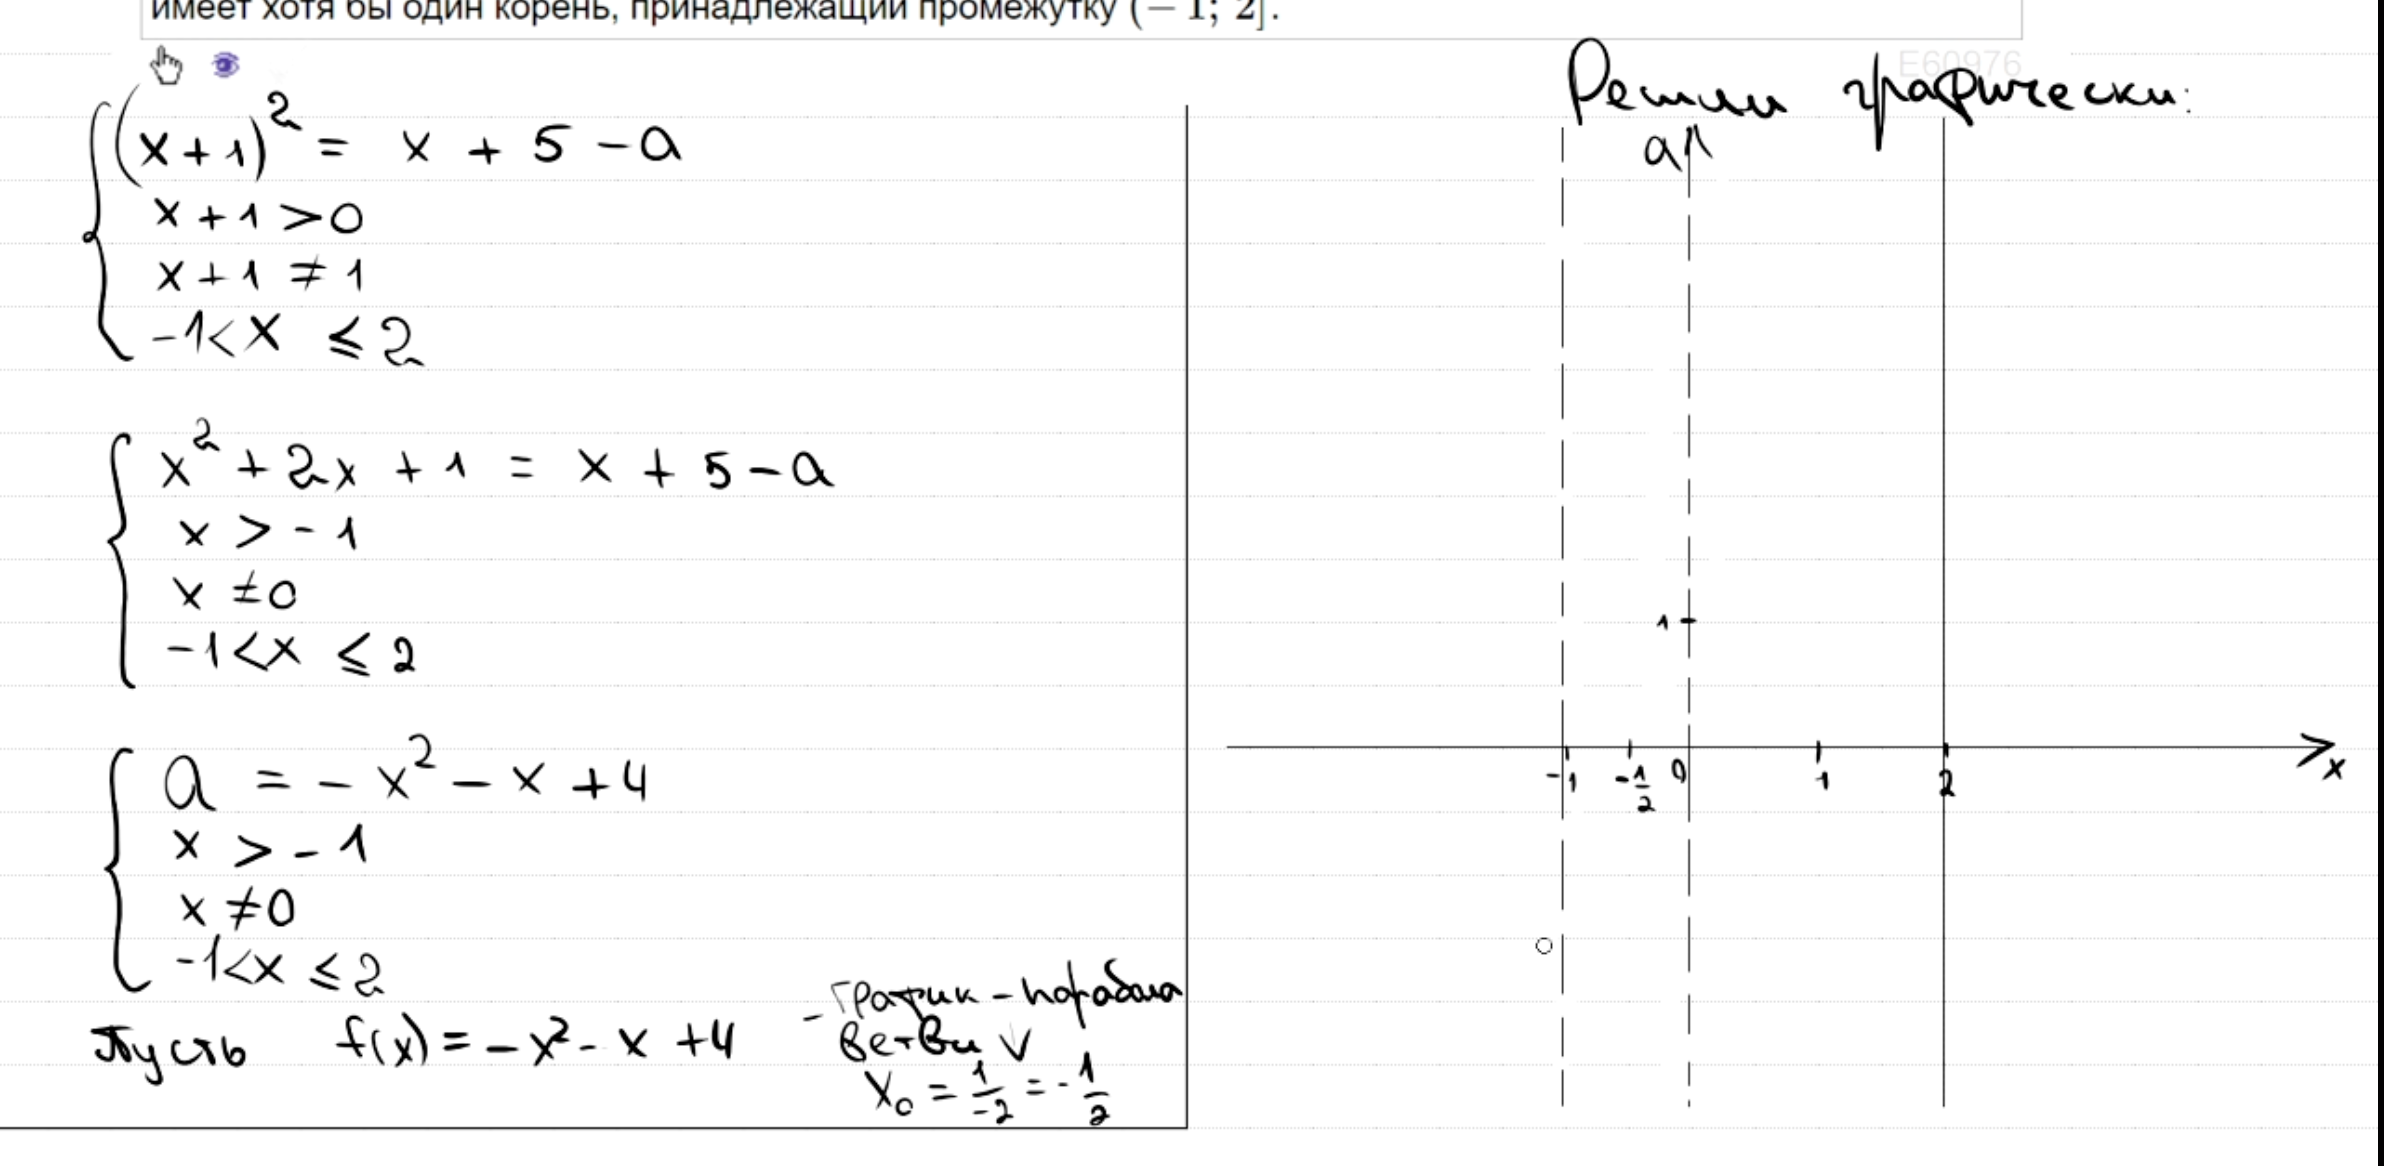 имеет хотя бы один корень, принадлежащий промежутку (− 1; 2].
E60976
(x+1)² = x + 5 − a
x + 1 > 0
x + 1 ≠ 1
−1 < x ≤ 2
x² + 2x + 1 = x + 5 − a
x > −1
x ≠ 0
−1 < x ≤ 2
a = − x² − x + 4
x > −1
x ≠ 0
−1 < x ≤ 2
Пусть f(x) = − x² − x + 4
− график − парабола
ветви ↓
x₀ = 1/−2 = − 1/2
Решим графически:
a
1
−1 −1/2 0 1 2 x